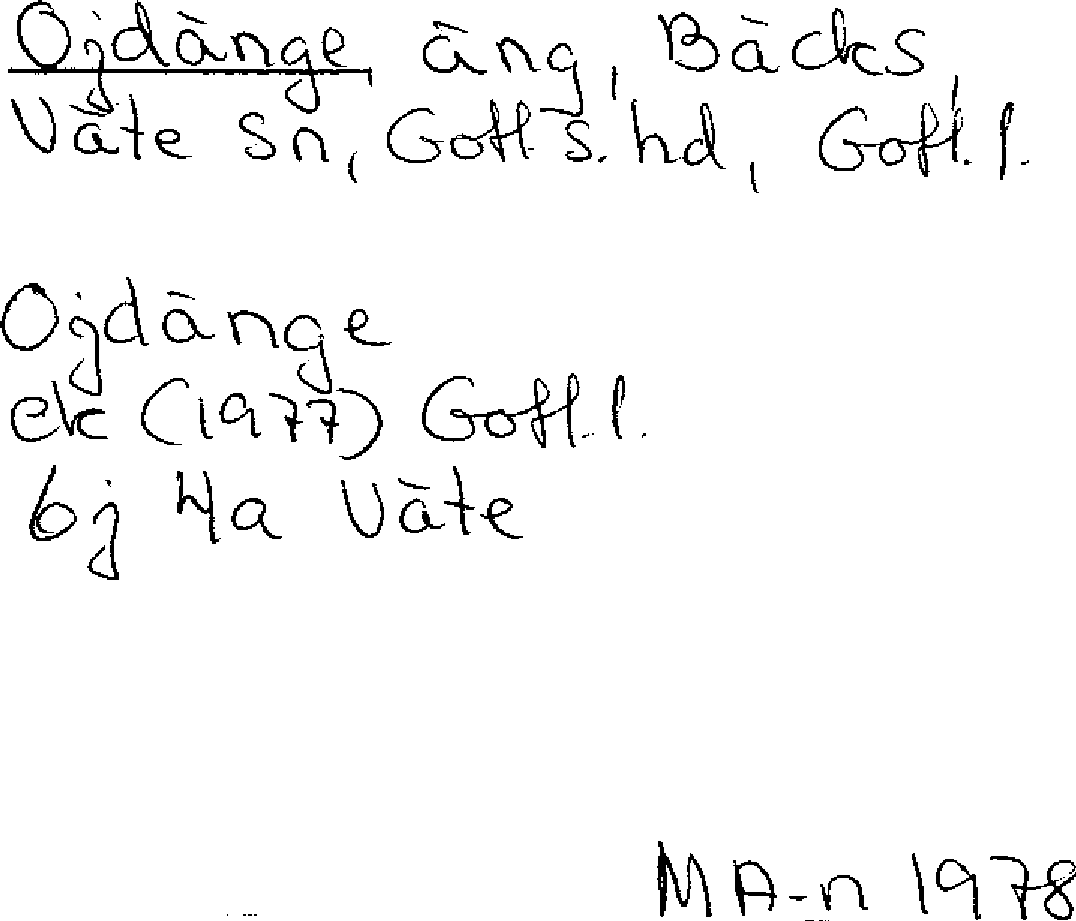 Ojdänge, äng, Bäcks,
Väte sn, Gotl s. hd, Gotl. l.
Ojdänge
ek (1977) Gotl. l.
6j 4a Väte
MA-n 1978